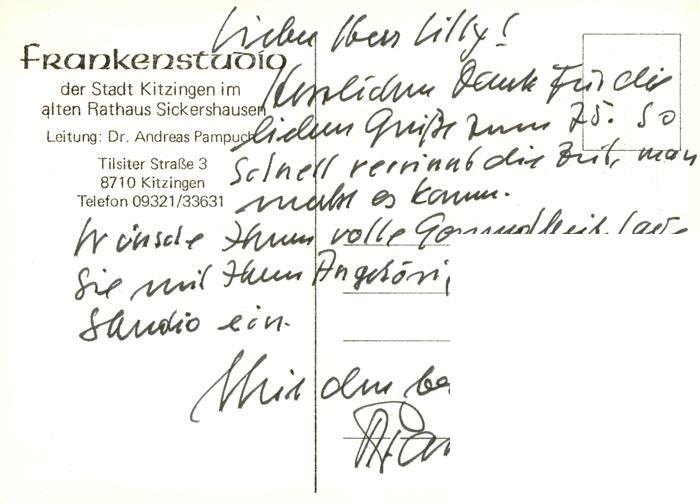 Lieber Herr Lilly!
Frankenstudio
der Stadt Kitzingen im
alten Rathaus Sickershausen
Leitung: Dr. Andreas Pampuch
Tilsiter Straße 3
8710 Kitzingen
Telefon 09321/33631
Herzlichen Dank für die
lieben Grüße zum 75. So
schnell verrinnt die Zeit, man
merkt es kaum.
Wünsche Ihnen volle Gesundheit, lade
Sie mit Ihren
Studio ein.
Mit den